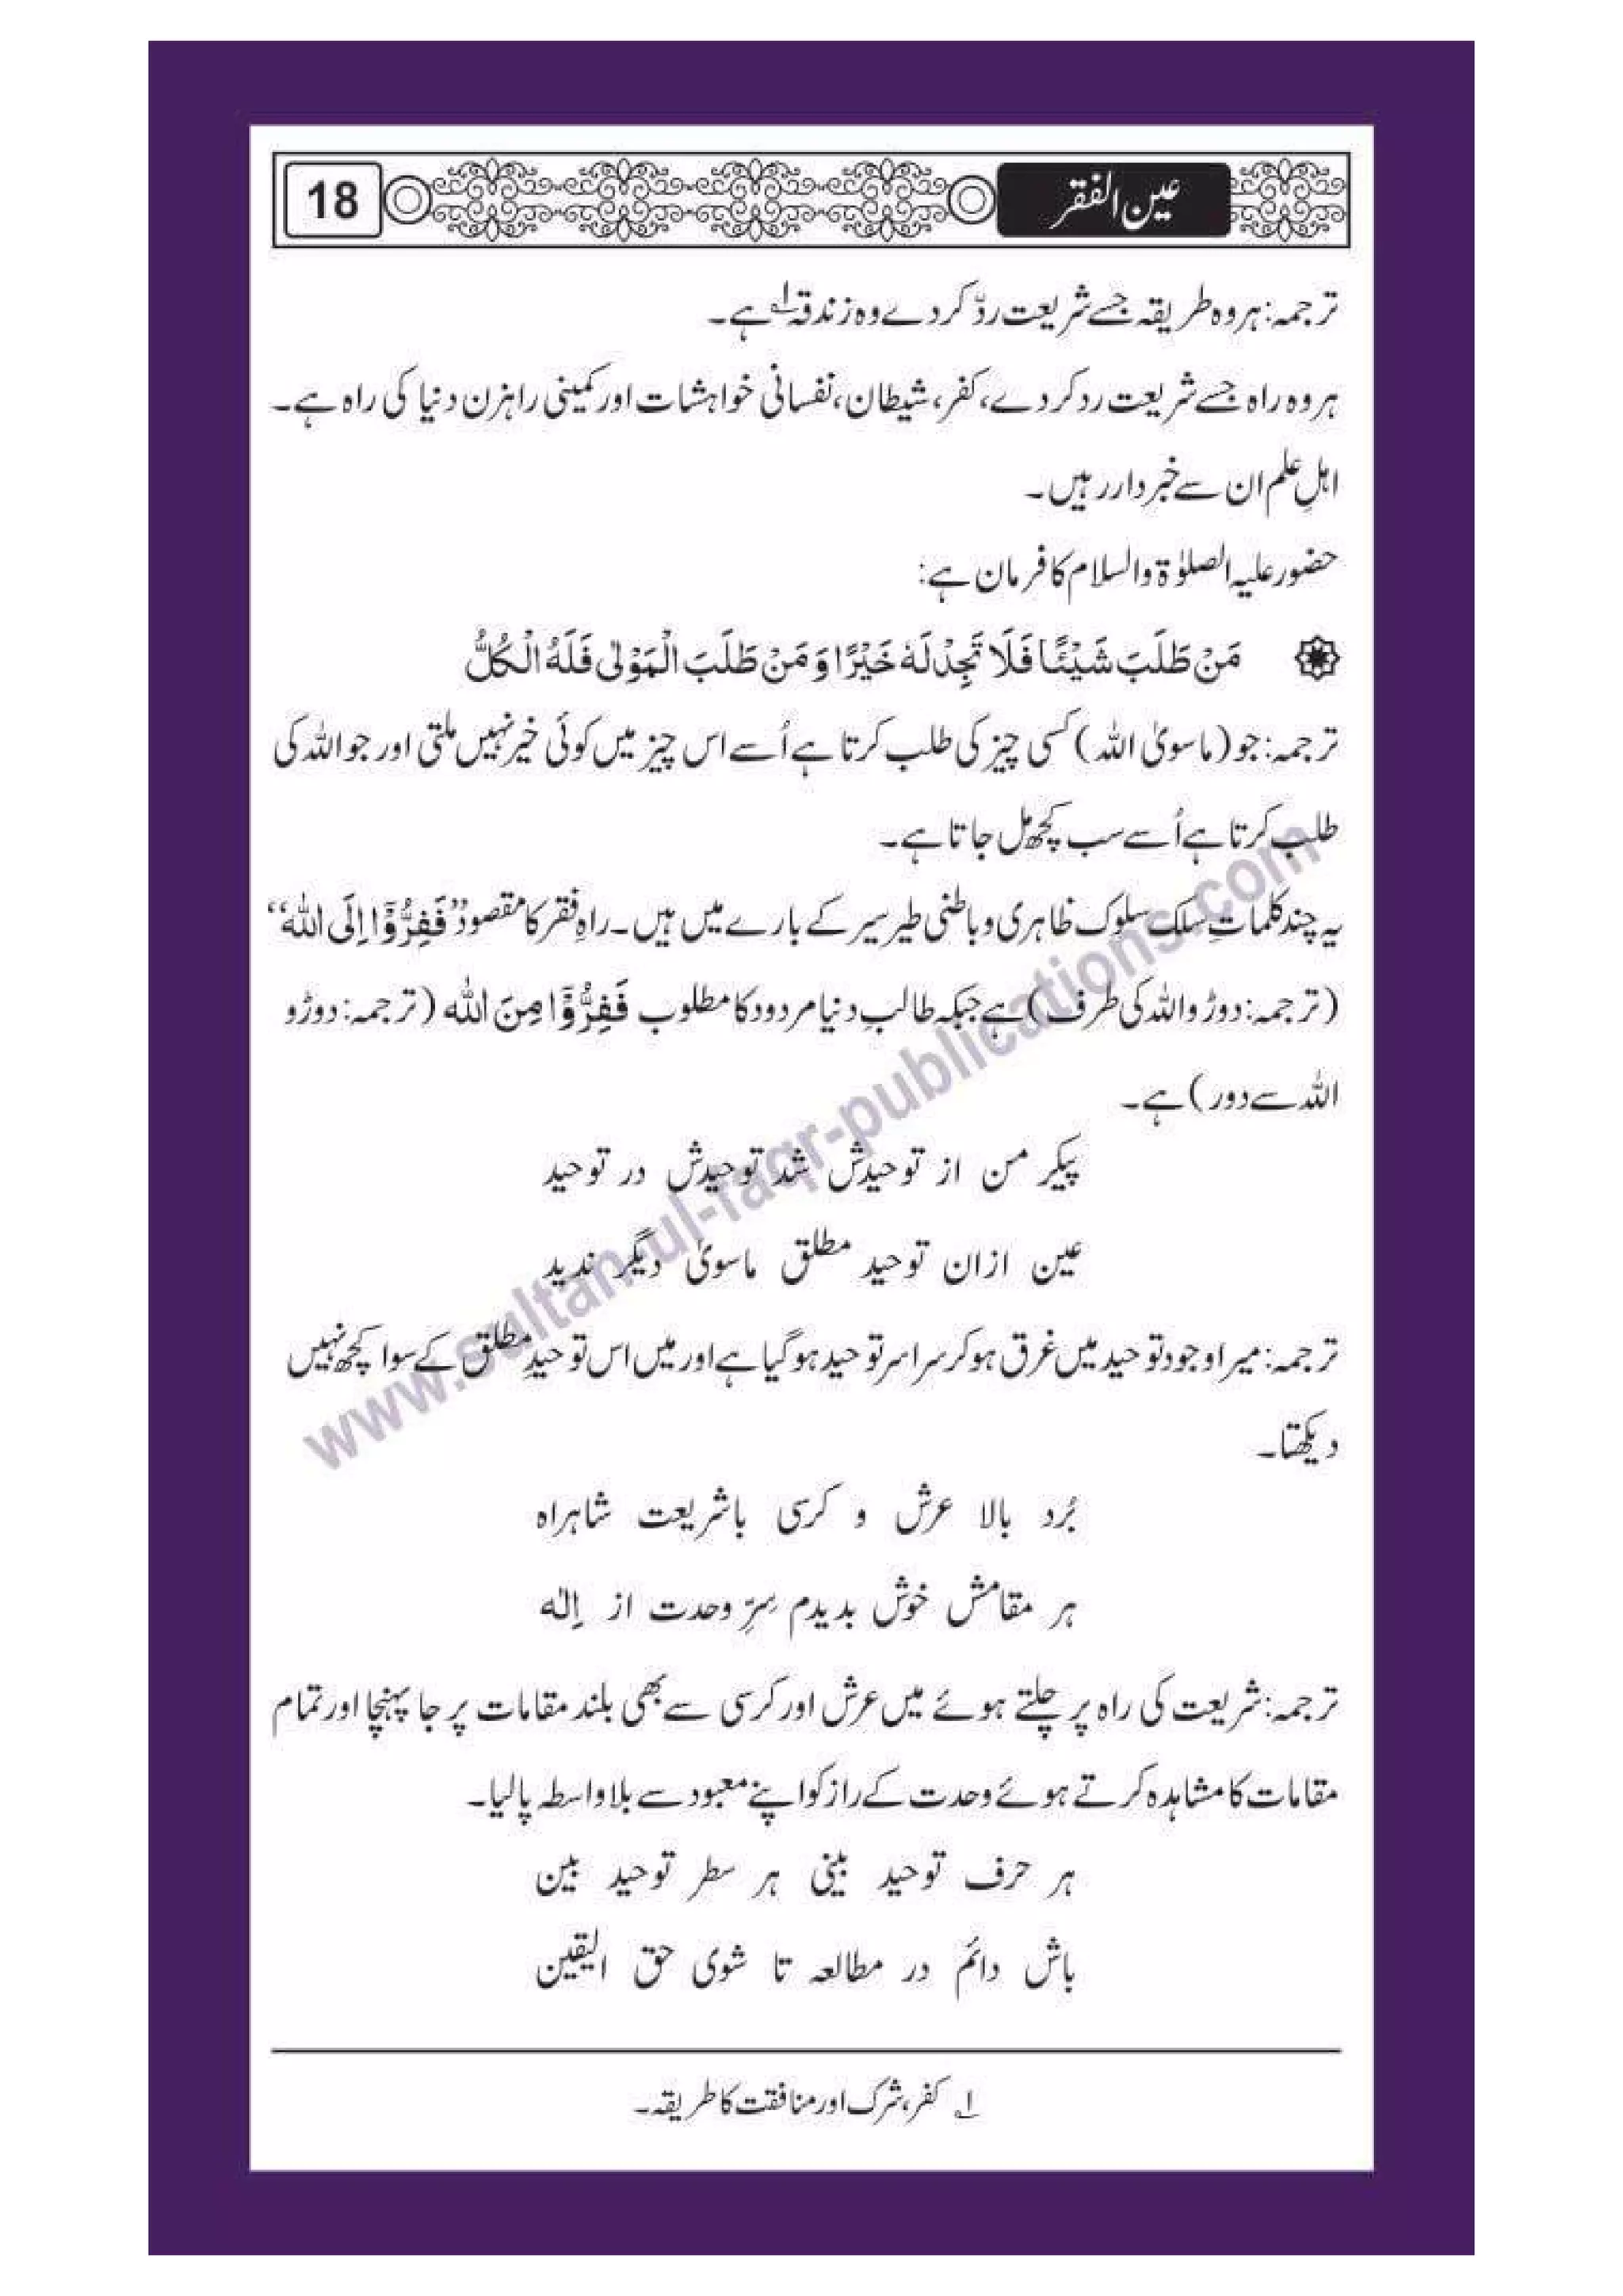 18
عین الفقر
ترجمہ: ہر وہ طریقہ جسے شریعت ردّ کر دے وہ زندقہ۱؎ ہے۔
ہر وہ راہ جسے شریعت رد کر دے، کفر، شیطان، نفسانی خواہشات اور کمینی راہزن دنیا کی راہ ہے۔
اہلِ علم ان سے خبردار رہیں۔
حضور علیہ الصلوٰۃ والسلام کا فرمان ہے:
مَنْ طَلَبَ شَیْئًا فَلَا تَجِدْ لَہٗ خَیْرًا وَ مَنْ طَلَبَ الْمَوْلٰی فَلَہُ الْکُلُّ
ترجمہ: جو (ماسویٰ اللہ) کسی چیز کی طلب کرتا ہے اُسے اس چیز میں کوئی خیر نہیں ملتی اور جو اللہ کی
طلب کرتا ہے اُسے سب کچھ مل جاتا ہے۔
یہ چند کلمات سِلک سلوک ظاہری و باطنی طیر سیر کے بارے میں ہیں۔ راہِ فقر کا مقصود ”فَفِرُّوْٓا اِلَی اللہ“
(ترجمہ: دوڑو اللہ کی طرف) ہے جبکہ طالبِ دنیا مردود کا مطلوب فَفِرُّوْٓا مِنَ اللہ (ترجمہ: دوڑو
اللہ سے دور) ہے۔
پیکر من از توحیدش شد توحیدش در توحید
عین ازان توحید مطلق ماسویٰ دیگر ندید
ترجمہ: میرا وجود توحید میں غرق ہو کر سراسر توحید ہو گیا ہے اور میں اس توحیدِ مطلق کے سوا کچھ نہیں
دیکھتا۔
بُرد بالا عرش و کرسی باشریعت شاہراہ
ہر مقامش خوش بدیدم سِرِّ وحدت از اِلٰہ
ترجمہ: شریعت کی راہ پر چلتے ہوئے میں عرش اور کرسی سے بھی بلند مقامات پر جا پہنچا اور تمام
مقامات کا مشاہدہ کرتے ہوئے وحدت کے راز کو اپنے معبود سے بلاواسطہ پا لیا۔
ہر حرف توحید بینی ہر سطر توحید بین
باش دائم در مطالعہ تا شوی حق الیقین
۱؎ کفر، شرک اور منافقت کا طریقہ۔
www.sultan-ul-faqr-publications.com